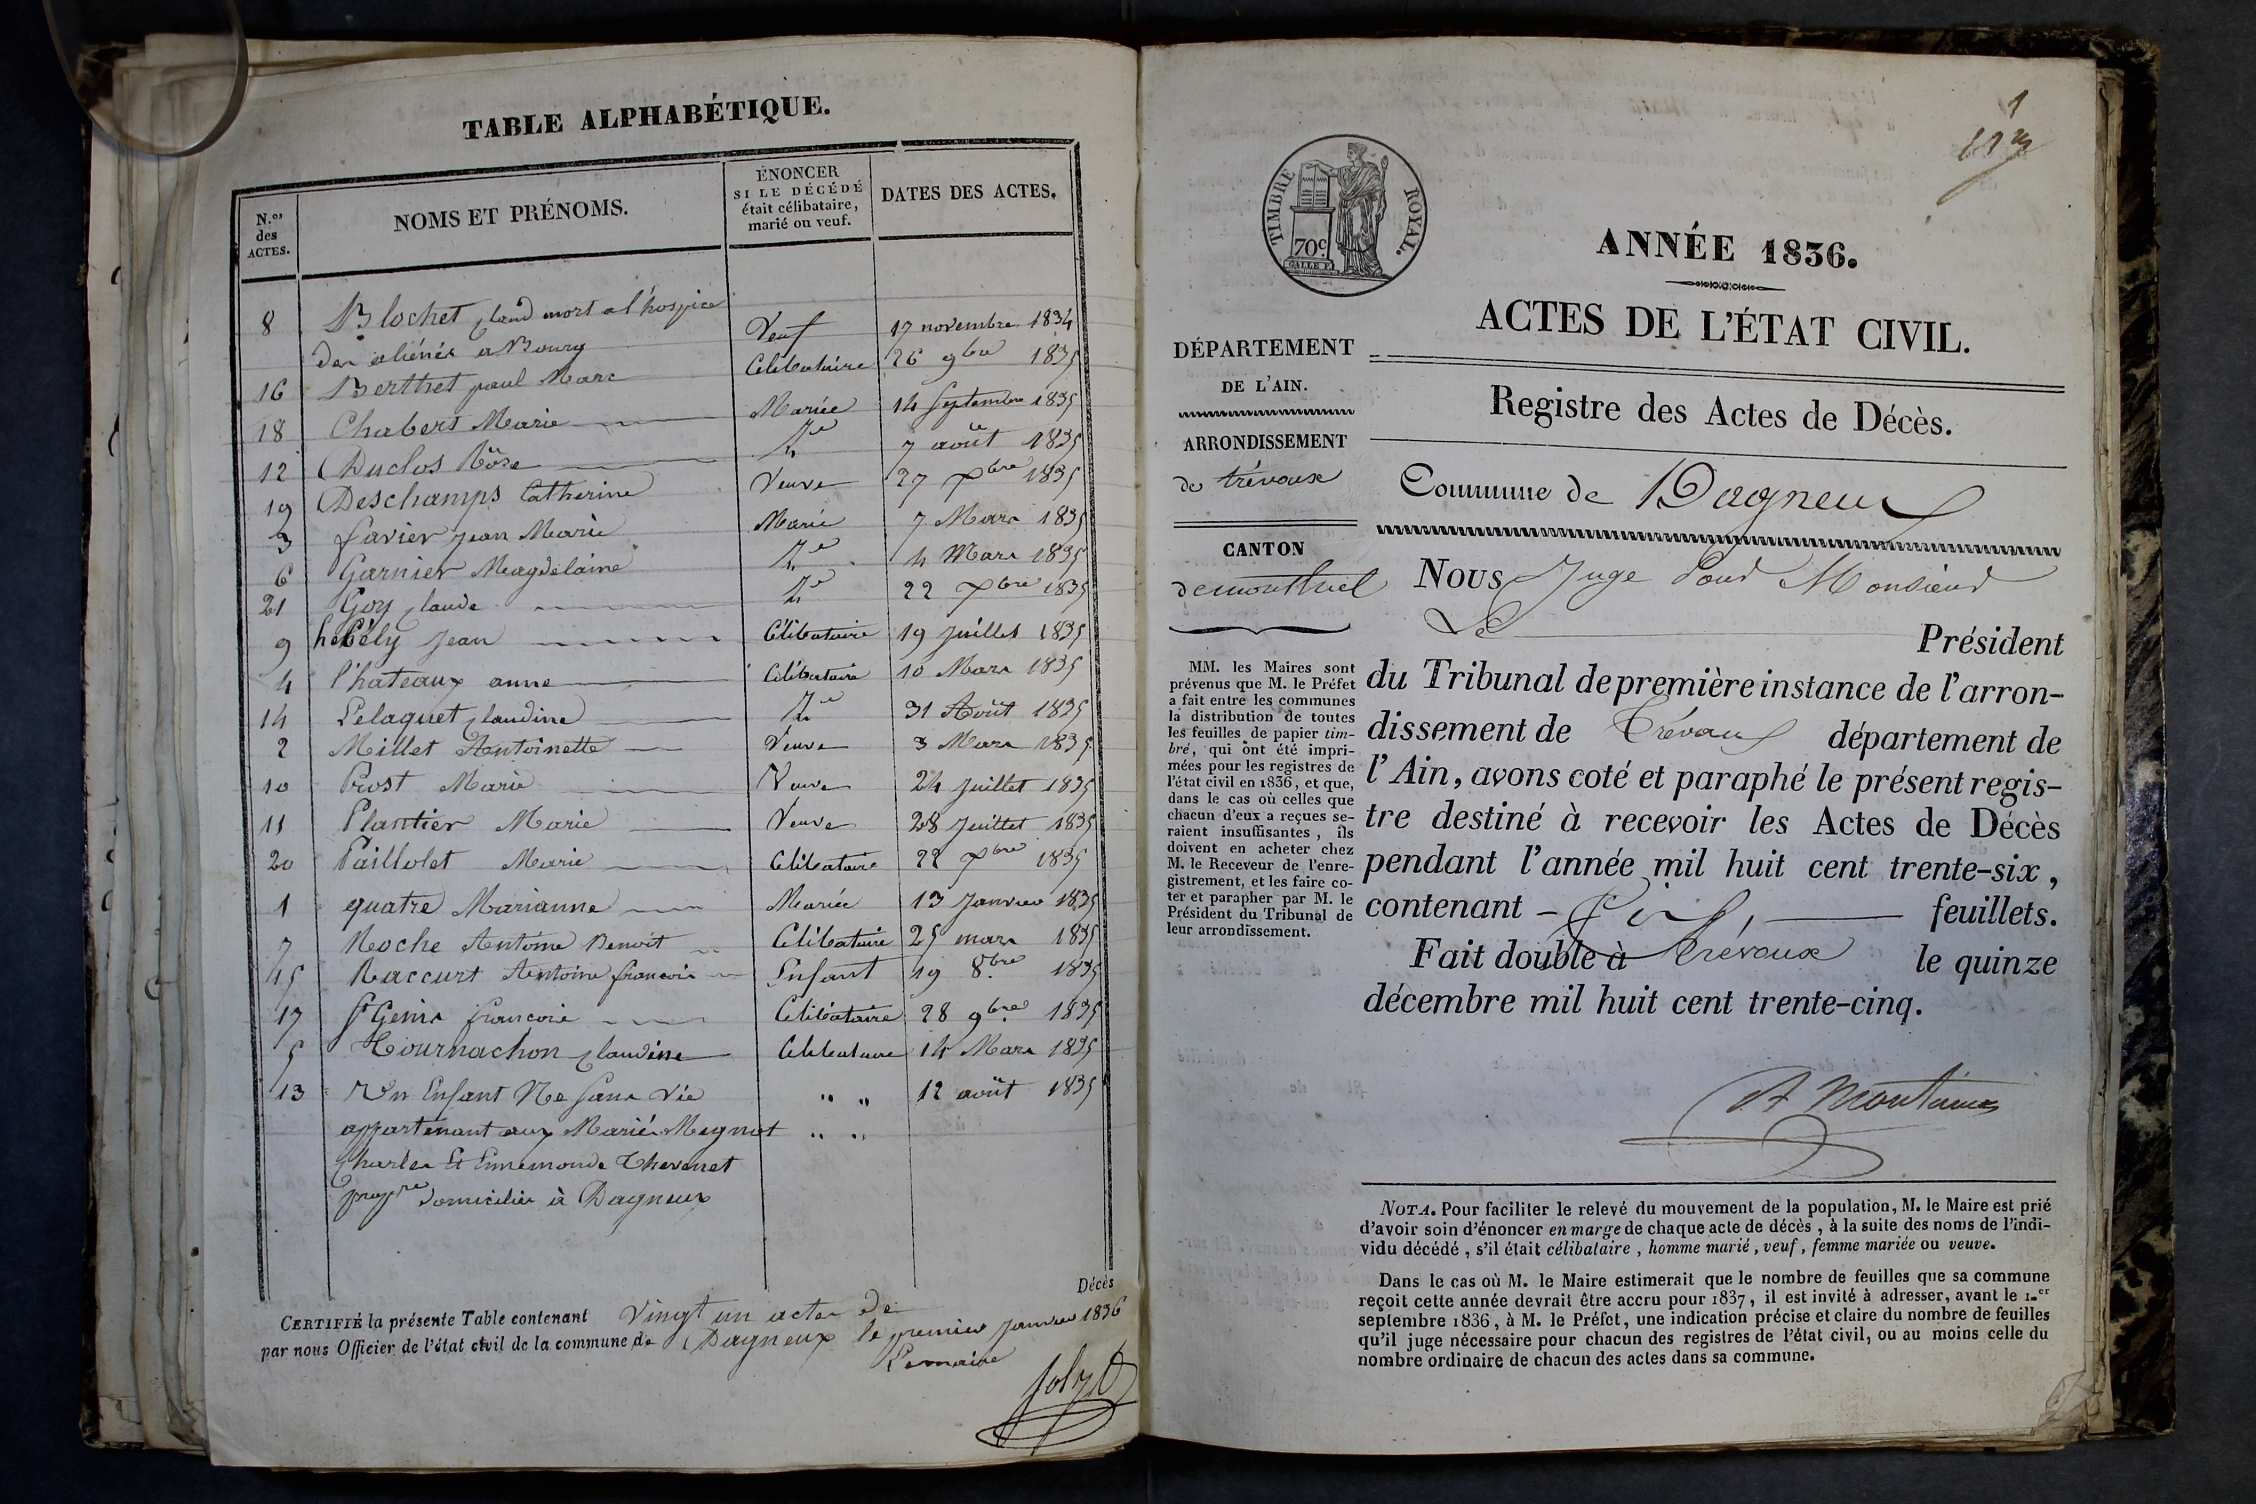 TABLE ALPHABÉTIQUE.
N.os des ACTES.
NOMS ET PRÉNOMS.
ÉNONCER SI LE DÉCÉDÉ était célibataire, marié ou veuf.
DATES DES ACTES.
8 Blochet Claud mort a l'hospice Veuf 17 novembre 1834
des aliénés a Bourg
16 Berthet paul Marc Célibataire 26 9bre 1835
18 Chabert Marie Mariée 14 Septembre 1835
12 Duclos Rôse 7 août 1835
19 Deschamps Catherine Veuve 27 Xbre 1835
3 favier Jean Marie Marié 7 Mars 1835
6 Garnier Magdelaine 4 Mars 1835
21 Goy Claude 22 Xbre 1835
9 Jean Célibataire 19 Juillet 1835
4 Chateaux anne Célibataire 10 Mars 1835
14 Pelaquet Claudine 31 Août 1835
2 Millet Antoinette Veuve 3 Mars 1835
10 Prost Marie Veuve 24 Juillet 1835
11 Plantier Marie Veuve 28 Juillet 1835
20 Paillolet Marie Célibataire 22 Xbre 1835
1 quatre Marianne Mariée 13 Janvier 1835
7 Roche Antoine Benoit Célibataire 25 mars 1835
15 Raccurt Antoine francois Enfant 19 8bre 1835
17 St Genis francois Célibataire 28 9bre 1835
5 Tournachon Claudine Célibataire 14 Mars 1835
13 Un Enfant Ne Sans Vie " " 12 août 1835
appartenant aux Mariés Meynet " "
Charles Et Ennemonde Thevenet
propre domiciliés à Dagneux
Décès
CERTIFIÉ la présente Table contenant Vingt un actes de
par nous Officier de l'état civil de la commune de Dagneux le premier Janvier 1836
Le maire
1
ANNÉE 1836.
TIMBRE ROYAL.
70c.
ACTES DE L'ÉTAT CIVIL.
DÉPARTEMENT
DE L'AIN.
ARRONDISSEMENT
de trévoux
CANTON
de montluel
MM. les Maires sont
prévenus que M. le Préfet
a fait entre les communes
la distribution de toutes
les feuilles de papier tim-
bré, qui ont été impri-
mées pour les registres de
l'état civil en 1836, et que,
dans le cas où celles que
chacun d'eux a reçues se-
raient insuffisantes, ils
doivent en acheter chez
M. le Receveur de l'enre-
gistrement, et les faire co-
ter et parapher par M. le
Président du Tribunal de
leur arrondissement.
Registre des Actes de Décès.
Commune de Dagneux
NOUS Juge Pour Monsieur
Le Président
du Tribunal de première instance de l'arron-
dissement de Trévoux département de
l'Ain, avons coté et paraphé le présent regis-
tre destiné à recevoir les Actes de Décès
pendant l'année mil huit cent trente-six,
contenant – Six, feuillets.
Fait double à Trévoux le quinze
décembre mil huit cent trente-cinq.
NOTA. Pour faciliter le relevé du mouvement de la population, M. le Maire est prié
d'avoir soin d'énoncer en marge de chaque acte de décès, à la suite des noms de l'indi-
vidu décédé, s'il était célibataire, homme marié, veuf, femme mariée ou veuve.
Dans le cas où M. le Maire estimerait que le nombre de feuilles que sa commune
reçoit cette année devrait être accru pour 1837, il est invité à adresser, avant le 1.er
septembre 1836, à M. le Préfet, une indication précise et claire du nombre de feuilles
qu'il juge nécessaire pour chacun des registres de l'état civil, ou au moins celle du
nombre ordinaire de chacun des actes dans sa commune.